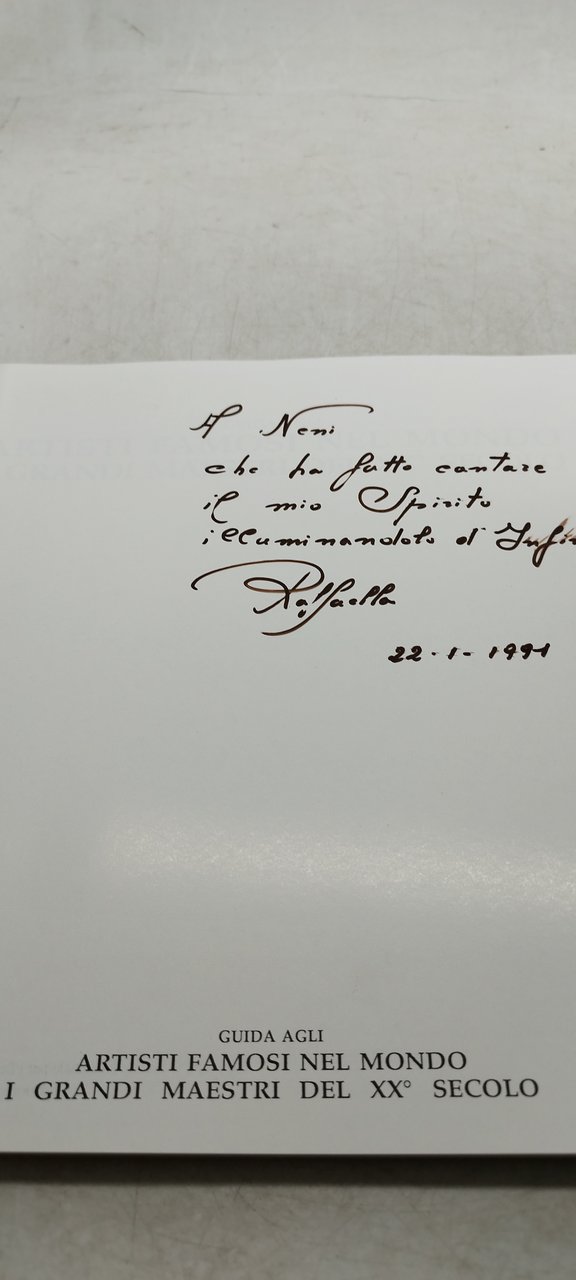 A Neni
che ha fatto cantare
il mio Spirito
illuminandolo d'
Raffaella
22-1-1991
GUIDA AGLI
ARTISTI FAMOSI NEL MONDO
I GRANDI MAESTRI DEL XX° SECOLO